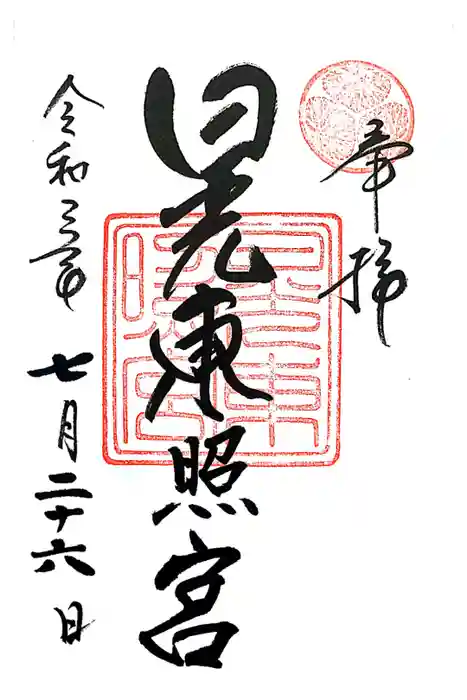 奉拝
日光東照宮
令和三年
七月二十六日